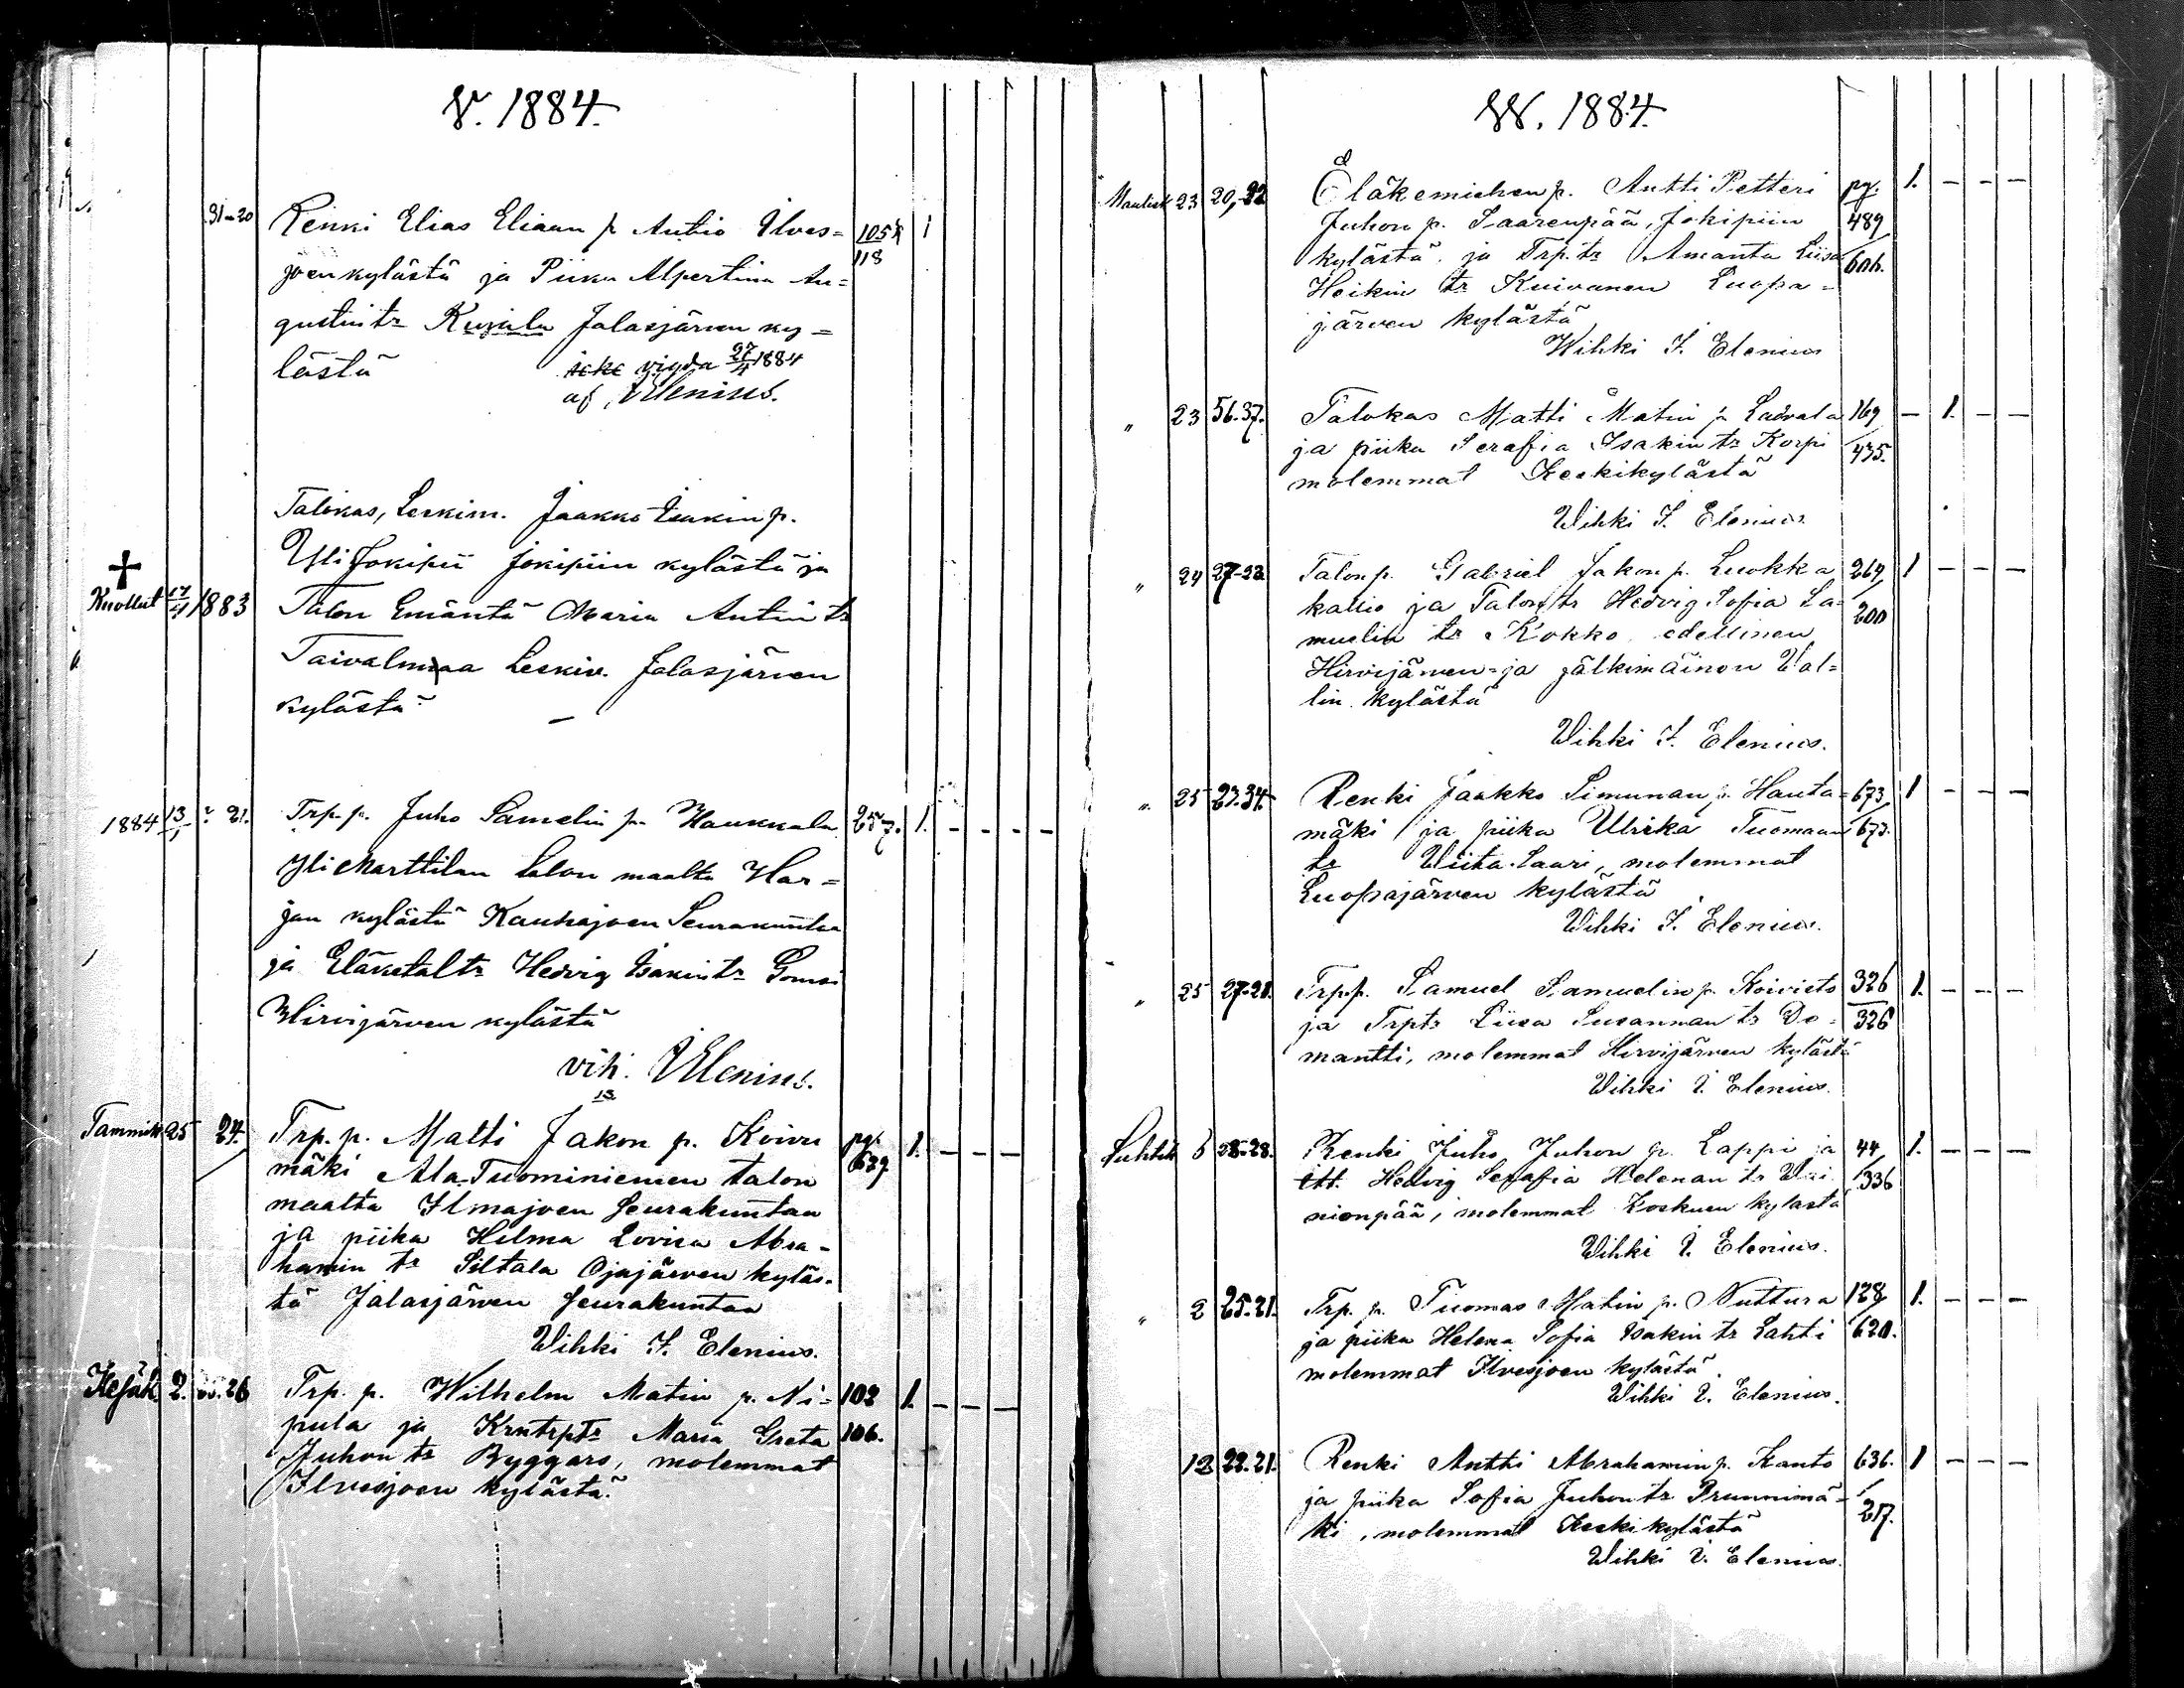 V. 1884.
31-20 Renki Elias Eliaan p Antio Ilves= 105½ 1
joen kylästä ja Piika Alpertina Au= 118
gustintr Kujala Jalasjärven ky=
lästä icke vigda 27/4 1884
af, J Elenius.
Talokas, Leskim. Jaakko Isakin p.
Yli Jokipii Jokipiin kylästä ja
Kuollut 17/4 1883 Talon Emäntä Maria Antin tr
Taivalmaa Leskiv. Jalasjärven
kylästä
1884 13/1 21. Trp. p. Juho Samelin p. Haukkala 257. 1. - - - -
Yli Marttilan talon maalta Har=
jan kylästä Kauhajoen Seurakuntaa
ja Eläketaltr Hedvig Isakin tr
Hirvijärven kylästä
vih. J Elenius.
13
Tammik 25 24. Trp. p. Matti Jakon p. Koivu pg. 1. - - -
mäki Ala-Tuominiemen talon 629
maalta Ilmajoen Seurakuntaa
ja piika Helma Lovisa Abra-
hamin tr Siltala Ojajärven kyläs-
tä Jalasjärven Seurakuntaa
Vihki J. Elenius.
Kesäk. 2. 26 Trp. p. Wilhelm Matin p. Ni= 102 1. - - -
pula ja Krntrptr Maria Greta 106.
Juhon tr Byggars, molemmat
Ilvesjoen kylästä.
W. 1884.
Maalisk 23 20,-22 Eläkemiehen p. Antti Petteri pg. 1. - - -
Juhon p. Saarenpää, Jokipiin 489
kylästä ja Trp. tr Amanta Liisa 606.
Heikin tr Kuivanen Luopa=
järven kylästä
Wihki J. Elenius
" 23 56.37. Talokas Matti Matin p Laivala 169 - 1. - -
ja piika Serafia Isakin tr Korpi 435.
molemmat Keskikylästä
Vihki J. Elenius.
" 24 27-23 Talon p. Gabriel Jakon p. Luokka 264, 1 - - -
kallio ja Talon tr Hedvig Sofia Sa= 200
muelin tr Kokko, edellinen
Hirvijärven= ja jälkimäinen Val=
lin kylästä
Vihki J. Elenius.
" 25 23.34. Renki Jaakko Simunan p. Hauta= 673, 1 - - -
mäki ja piika Ulrika Tuomaan 673.
tr Viita-Saari, molemmat
Luopajärven kylästä
Vihki J. Elenius.
" 25 27.21. Trp. p. Samuel Samuelin p. Koivisto 326 1. - - -
ja Trptr Liisa Susannan tr Do= 326
mantti, molemmat Hirvijärven kylästä
Vihki J. Elenius.
Huhtik 6 28.28. Renki Juho Juhon p. Lappi ja 44 1. - - -
itt. Hedvig Serafia Helenan tr Vai 336
nionpää, molemmat Koskuen kylästä
Vihki J. Elenius.
" 2 25.21. Trp. p. Tuomas Matin p. Nuttura 128, 1. - - -
ja piika Helena Sofia Isakin tr Lahti 620.
molemmat Ilvesjoen kylästä.
Vihki J. Elenius.
12 22.21. Renki Antti Abrahamin p. Kanto 636. 1 - - -
ja piika Sofia Juhon tr Prunnimä= 217.
ki, molemmat Keskikylästä
Vihki J. Elenius.